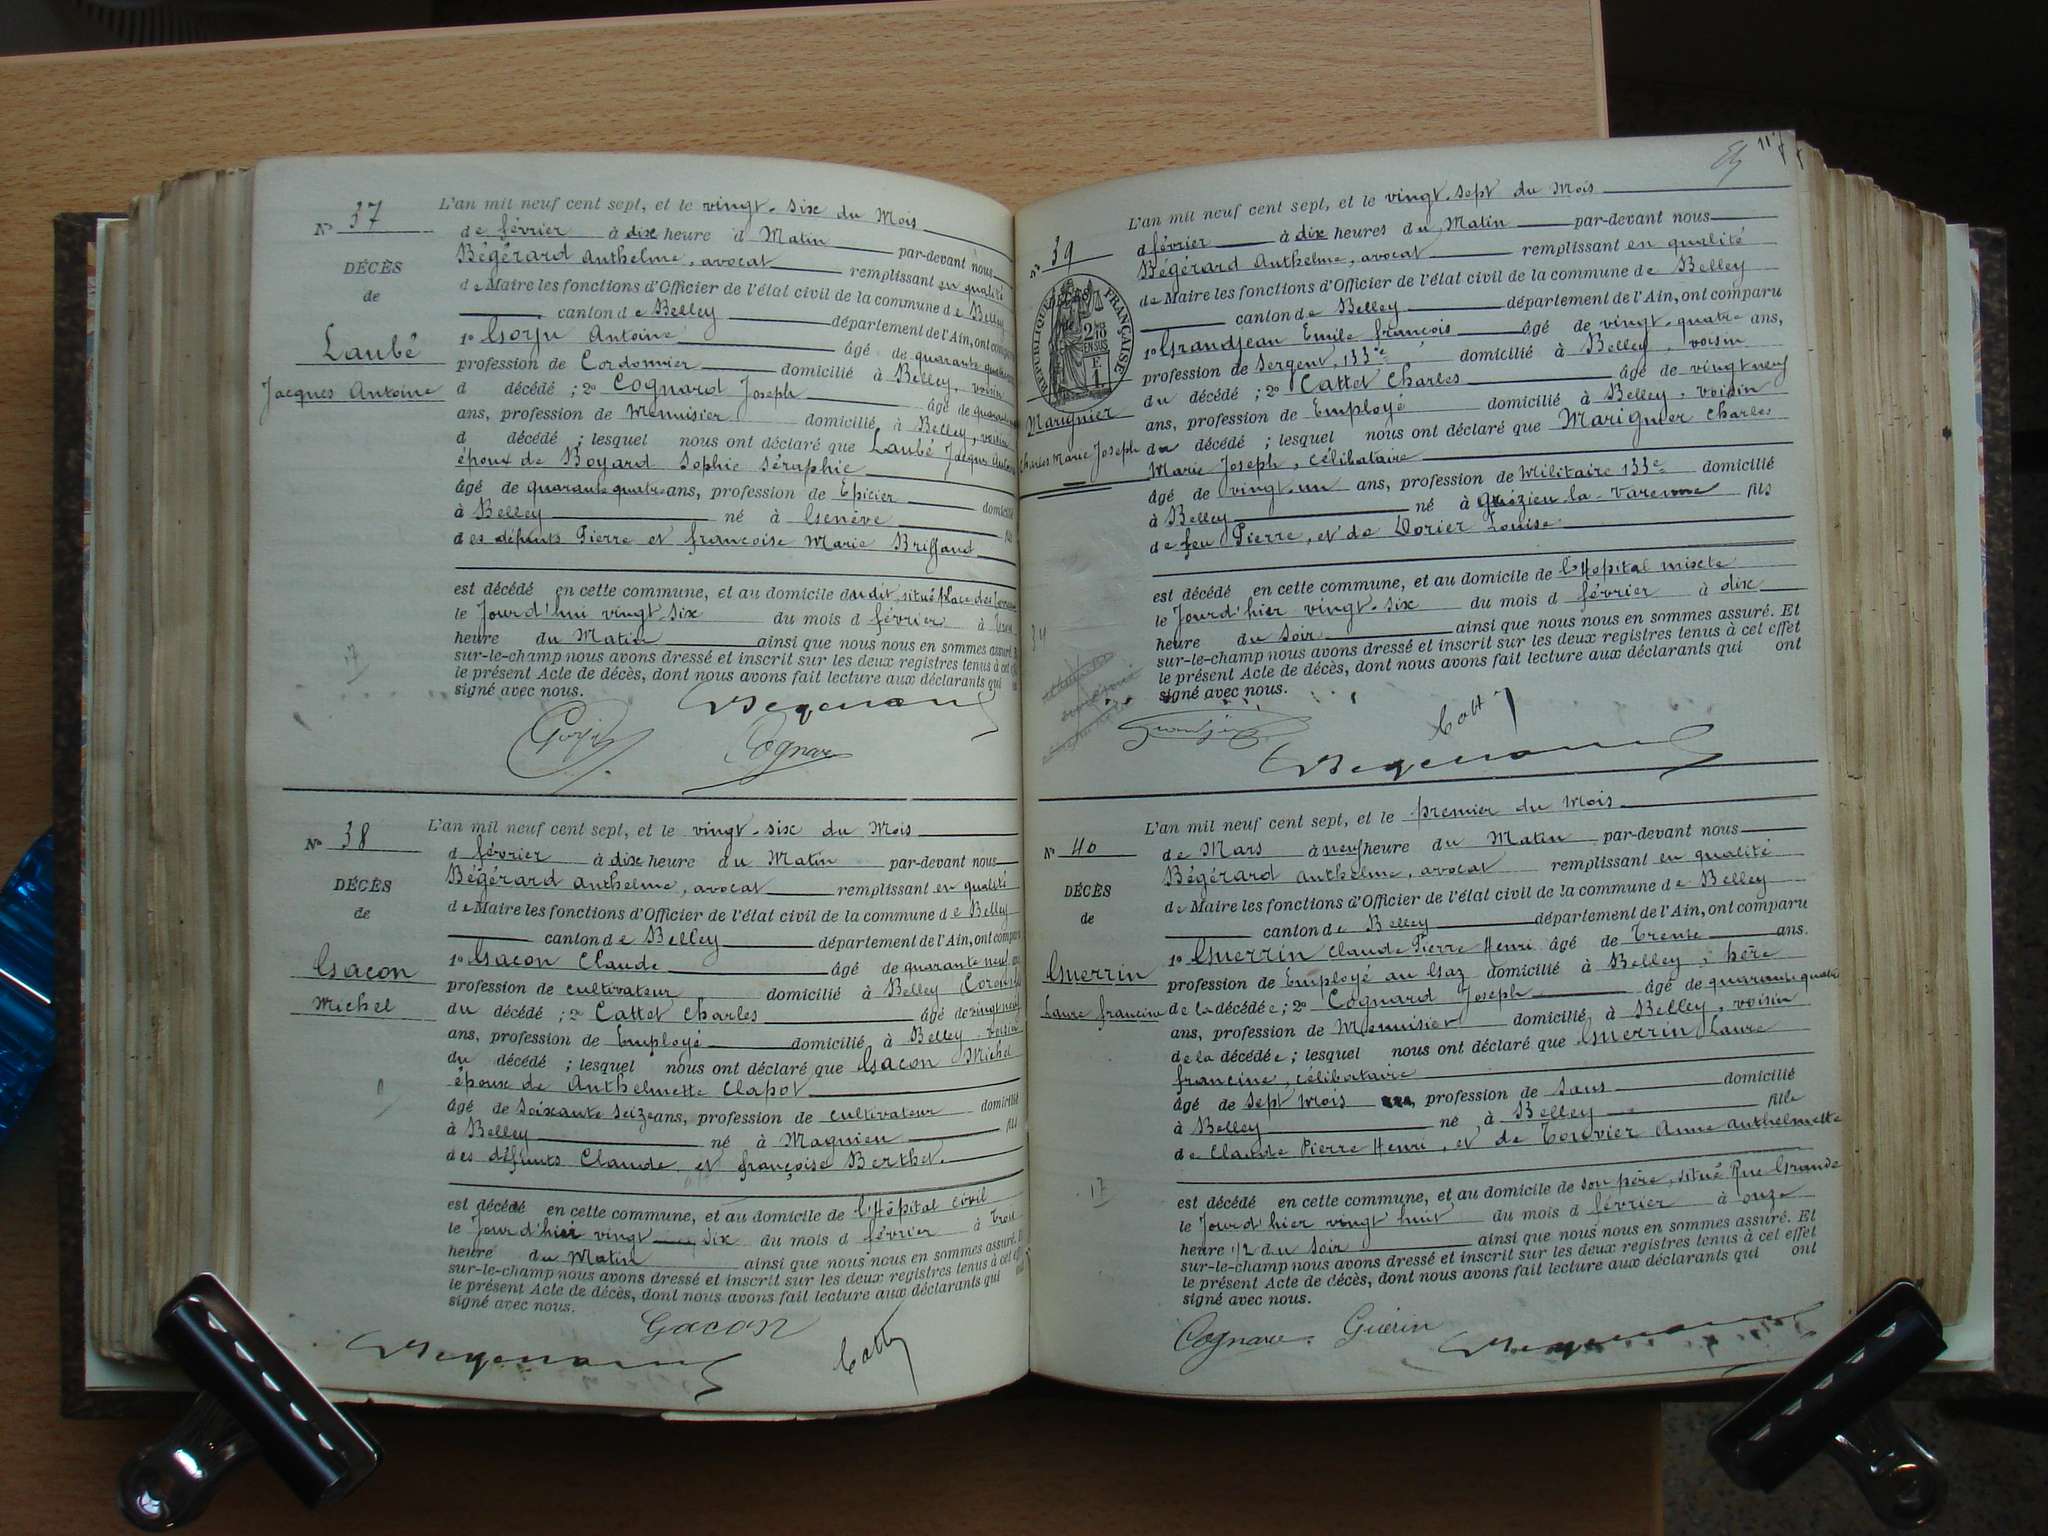 N° 37
DÉCÈS
de
Laubé
Jacques Antoine
L'an mil neuf cent sept, et le vingt-six du Mois
de février à dix heure d Matin par-devant nous
Bégérard Anthelme, avocat remplissant en qualité
de Maire les fonctions d'Officier de l'état civil de la commune de Belley
canton de Belley département de l'Ain, ont comparu
1° Gorju Antoine âgé de quarante
profession de Cordonnier domicilié à Belley, voisin
d décédé ; 2° Cognard Joseph âgé de quarante
ans, profession de Menuisier domicilié à Belley, voisin
d décédé ; lesquel nous ont déclaré que Laubé Jacques Antoine
époux de Boyard Sophie Séraphie
âgé de quarante quatre ans, profession de Epicier domicilié
à Belley né à Genève fils
des défunts Pierre et françoise Marie Briffaud
est décédé en cette commune, et au domicile dudit, situé place des
le Jourd'hui vingt-six du mois d février à
heure du Matin ainsi que nous nous en sommes assuré. Et
sur-le-champ nous avons dressé et inscrit sur les deux registres tenus à cet effet
le présent Acte de décès, dont nous avons fait lecture aux déclarants qui ont
signé avec nous.
Cognard
N° 38
DÉCÈS
de
Gacon
Michel
L'an mil neuf cent sept, et le vingt-six du Mois
d février à dix heure du Matin par-devant nous
Bégérard Anthelme, avocat remplissant en qualité
de Maire les fonctions d'Officier de l'état civil de la commune de Belley
canton de Belley département de l'Ain, ont comparu
1° Gacon Claude âgé de quarante neuf ans
profession de cultivateur domicilié à Belley
du décédé ; 2° Cattet Charles âgé de vingt neuf
ans, profession de Employé domicilié à Belley, voisin
du décédé ; lesquel nous ont déclaré que Gacon Michel
époux de Anthelmette Clapot
âgé de soixante seize ans, profession de cultivateur domicilié
à Belley né à Magnieu fils
des défunts Claude et françoise Berthet.
est décédé en cette commune, et au domicile de l'Hôpital civil
le Jourd'hui vingt six du mois d février à trois
heure du Matin ainsi que nous nous en sommes assuré. Et
sur-le-champ nous avons dressé et inscrit sur les deux registres tenus à cet effet
le présent Acte de décès, dont nous avons fait lecture aux déclarants qui ont
signé avec nous.
Gacon
117
N° 39
RÉPUBLIQUE FRANÇAISE
2/10 EN SUS
Marignier
Charles Marie Joseph
L'an mil neuf cent sept, et le vingt-sept du Mois
d février à dix heures du Matin par-devant nous
Bégérard Anthelme, avocat remplissant en qualité
de Maire les fonctions d'Officier de l'état civil de la commune de Belley
canton de Belley département de l'Ain, ont comparu
1° Grandjean Emile françois âgé de vingt-quatre ans,
profession de Sergent, 133e domicilié à Belley, voisin
du décédé ; 2° Cattet Charles âgé de vingt neuf
ans, profession de Employé domicilié à Belley, voisin
du décédé ; lesquel nous ont déclaré que Marignier Charles
Marie Joseph, célibataire
âgé de vingt-un ans, profession de Militaire 133e domicilié
à Belley né à Grézieu-la-Varenne fils
de feu Pierre, et de Dorier Louise.
est décédé en cette commune, et au domicile de l'Hopital mixte
le Jourd'hier vingt-six du mois d février à dix
heure du soir ainsi que nous nous en sommes assuré. Et
sur-le-champ nous avons dressé et inscrit sur les deux registres tenus à cet effet
le présent Acte de décès, dont nous avons fait lecture aux déclarants qui ont
signé avec nous.
N° 40
DÉCÈS
de
Guerrin
Laure francine
L'an mil neuf cent sept, et le premier du Mois
de Mars à neuf heure du Matin par-devant nous
Bégérard Anthelme, avocat remplissant en qualité
de Maire les fonctions d'Officier de l'état civil de la commune de Belley
canton de Belley département de l'Ain, ont comparu
1° Guerrin Claude Pierre Henri âgé de Trente ans.
profession de Employé au Gaz domicilié à Belley, père
de la décédée ; 2° Cognard Joseph âgé de quarante quatre
ans, profession de Menuisier domicilié à Belley, voisin
de la décédée ; lesquel nous ont déclaré que Guerrin Laure
francine, célibataire
âgé de sept mois profession de sans domicilié
à Belley né à Belley fille
de Claude Pierre Henri, et de Touvier Anne Anthelmette
est décédé en cette commune, et au domicile de son père, situé Rue Grande
le Jourd'hier vingt huit du mois d février à onze
heure 1/2 du soir ainsi que nous nous en sommes assuré. Et
sur-le-champ nous avons dressé et inscrit sur les deux registres tenus à cet effet
le présent Acte de décès, dont nous avons fait lecture aux déclarants qui ont
signé avec nous.
Cognard Guérin